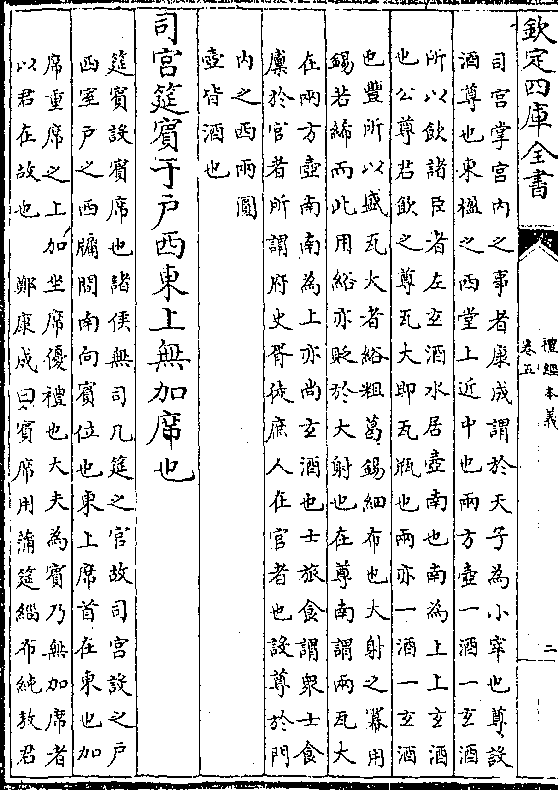 欽定四庫全書
禮經本義
卷五
二
司宮掌宮內之事者康成謂於天子為小宰也尊設
酒尊也東楹之西堂上近中也兩方壺一酒一玄酒
所以飲諸臣者左玄酒水居壺南也南為上上玄酒
也公尊君飲之尊瓦大即瓦瓶也兩亦一酒一玄酒
也豐所以盛瓦大者綌粗葛錫細布也大射之冪用
錫若絺而此用綌亦貶於大射也在尊南謂兩瓦大
在兩方壺南南為上亦尚玄酒也士旅食謂衆士食
廩於官者所謂府史胥徒庶人在官者也設尊於門
內之西兩圓
壺皆酒也
司宮筵賓于戶西東上無加席也
筵賓設賓席也諸侯無司几筵之官故司宮設之戶
西室戶之西牖間南向賓位也東上席首在東也加
席重席之上加坐席優禮也大夫為賓乃無加席者
以君在故也 鄭康成曰賓席用蒲筵緇布純敖君